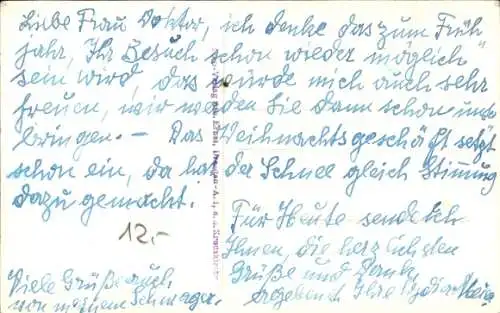 Liebe Frau Doktor, ich denke das zum Früh
jahr, Ihr Besuch schon wieder möglich
sein wird, das würde mich auch sehr
freuen, wir werden Sie dann schon unter
bringen. – Das Weihnachtsgeschäft setzt
schon ein, da hat der Schnee gleich Stimung
dazu gemacht!
Für Heute sende ich
Ihnen, die herzlichsten
Grüße und Danke,
ergebenst Ihre
12.-
Viele Grüße auch
von meinem Schwager.